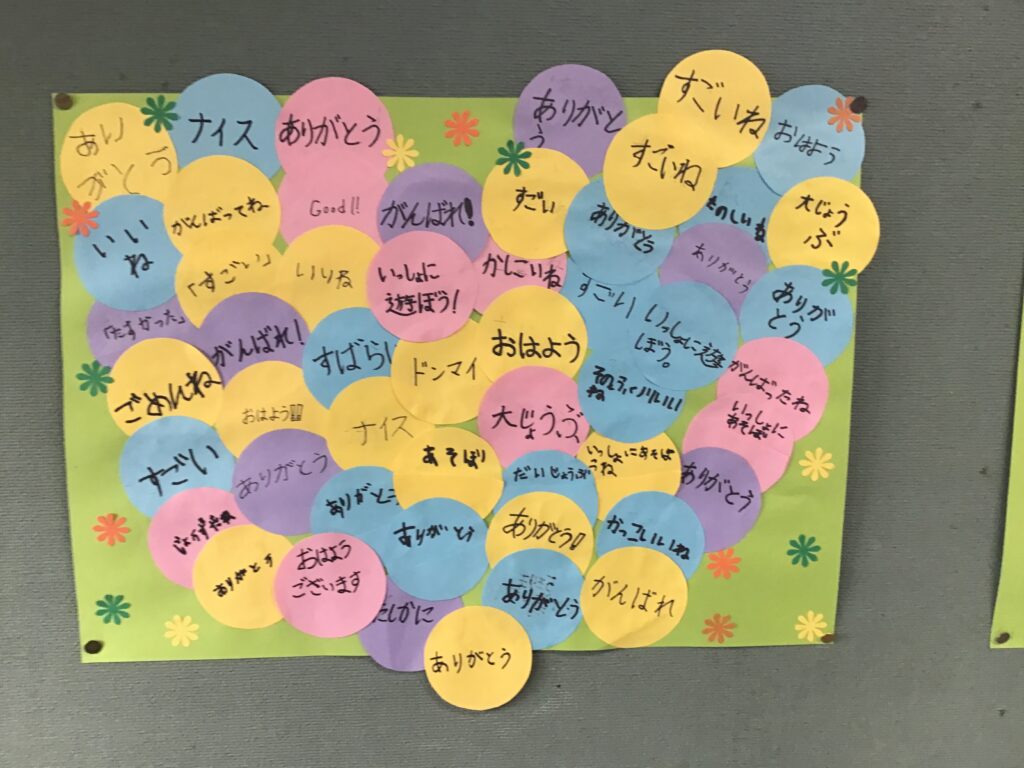 ありがとう
ナイス
ありがとう
ありがと
う
すごいね
すごいね
おはよう
いい
ね
がんばってね
Good!!
がんばれ!
すごい
ありがとう
たのしいね
大じょう
ぶ
「すごい」
いっしょに
遊ぼう!
かしこいね
ありがとう
ありが
とう
「たすかった」
がんばれ!
すばらし
ドンマイ
おはよう
すごい
いっしょに遊
ぼう。
ごめんね
おはよう!!!
ナイス
大じょうぶ
がんばったね
いっしょに
あそぼ
すごい
ありがとう
あそぼう
だいじょうぶ
いっしょにあそぼ
うね
ありがとう
じょうずだね
ありがとう
ありがとう
ありがとう!!
かっこいいね
ありがとう
おはよう
ございます
たしかに
ありがとう
がんばれ
ありがとう